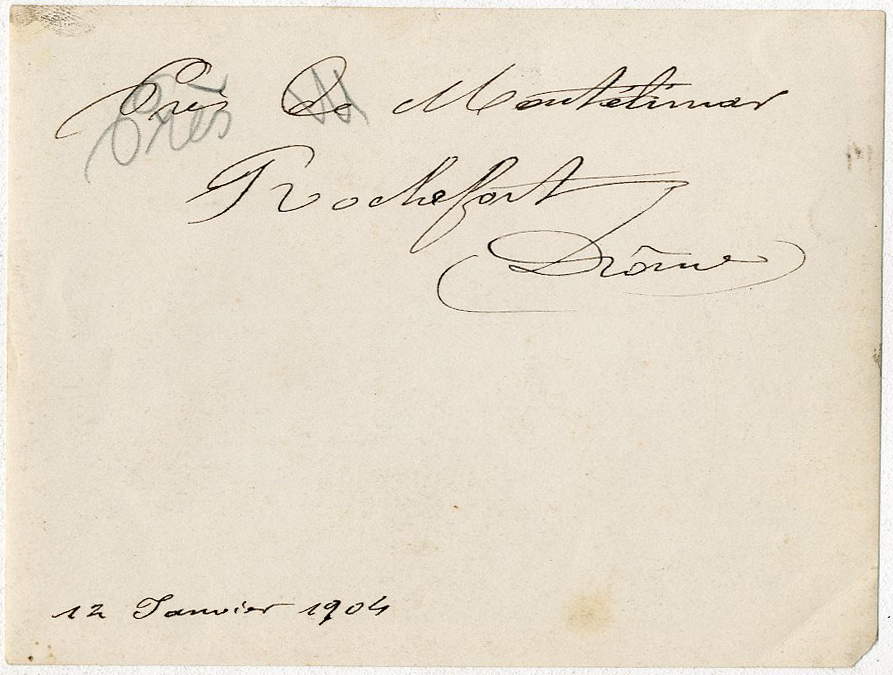 Près De Montélimar
Près
Rochefort
(Drôme)
12 Janvier 1904